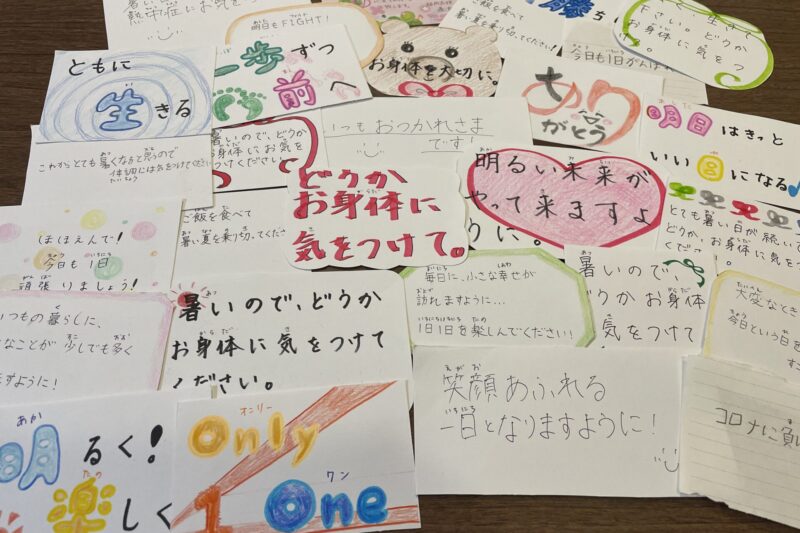 熱中症にお気を
明日もFIGHT!
を食べて
暑い夏を乗り切ってください!
お身体を大切に。
勝ち
今日も1日がんばれ
生き
下さい。どうか
お身体に気をつ
ともに
生きる
一歩ずつ
前へ
ありがとう
明日はきっと
いい日になる♪
これからとても暑くなると思うので
体調には気をつけてください
暑いので、どうか
お身体にお気を
つけてください。
いつもおつかれさま
です!
どうか
お身体に
気をつけて。
明るい未来が
やって来ますよ
うに。
とても暑い日が続いて
お身体に気をつ
ください
ほほえんで!
今日も1日
頑張りましょう!
ご飯を食べて
暑い夏を乗り切ってくださ
毎日に、小さな幸せが
訪れますように…
1日1日を楽しんでください!
暑いので、
どうかお身体
気をつけて
大変なとき
今日という日を
いつもの暮らしに、
なことが少しでも多く
ますように!
暑いので、どうか
お身体に気をつけて
ください。
笑顔あふれる
一日となりますように!
コロナに負
明るく!
楽しく
オンリー
Only
1
ワン
One